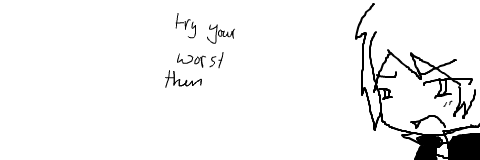 try your
worst
then